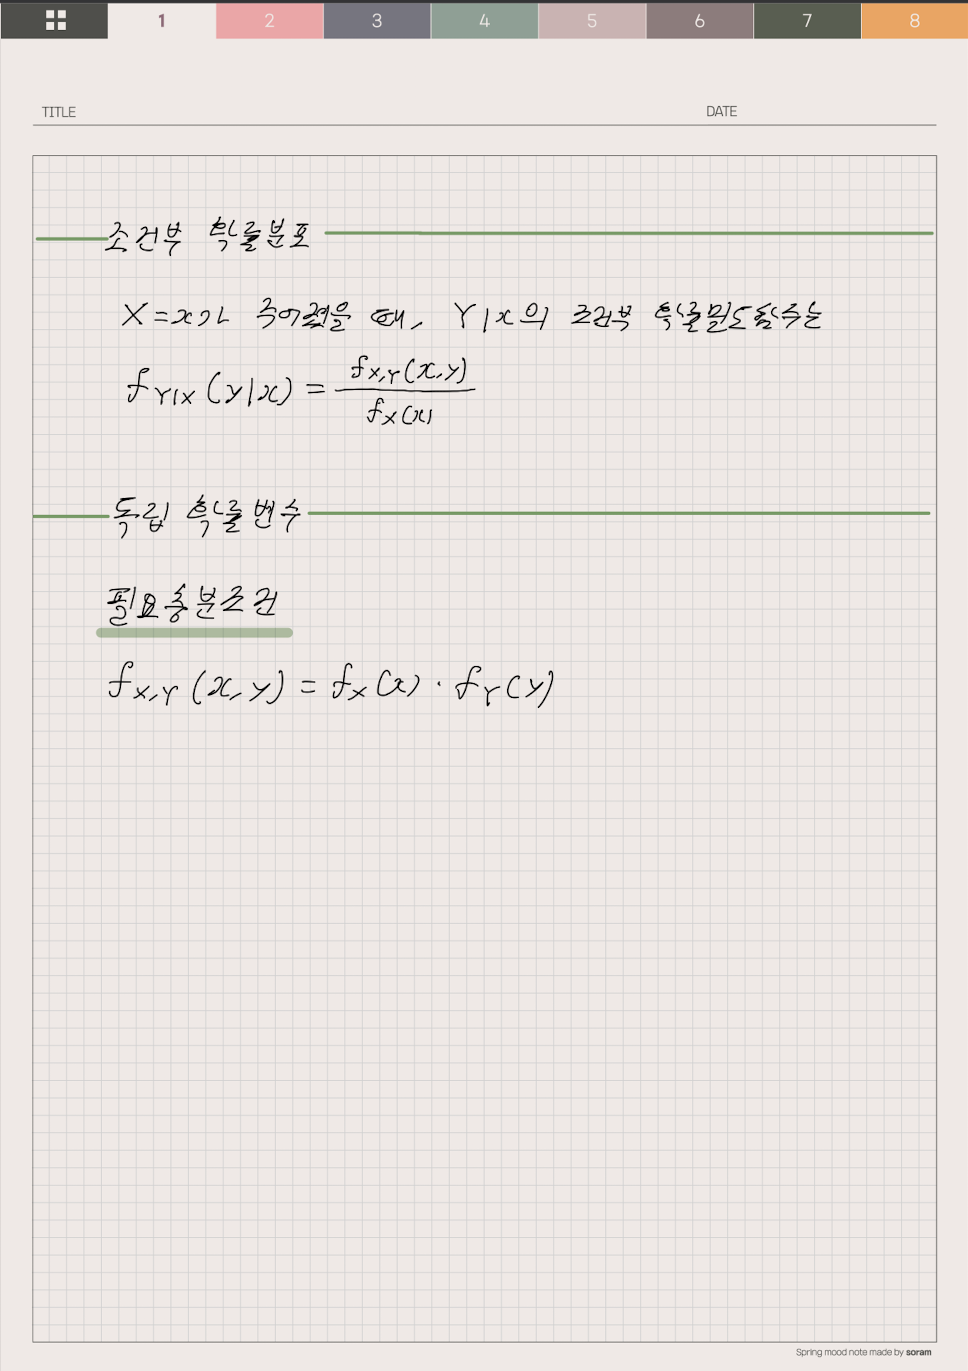 1 2 3 4 5 6 7 8
TITLE DATE
조건부 확률분포
X=x가 주어졌을 때, Y|x의 조건부 확률밀도함수는
f_{Y|X}(y|x) = \frac{f_{X,Y}(x,y)}{f_X(x)}
독립 확률변수
필요충분조건
f_{X,Y}(x,y) = f_X(x) · f_Y(y)
Spring mood note made by soram